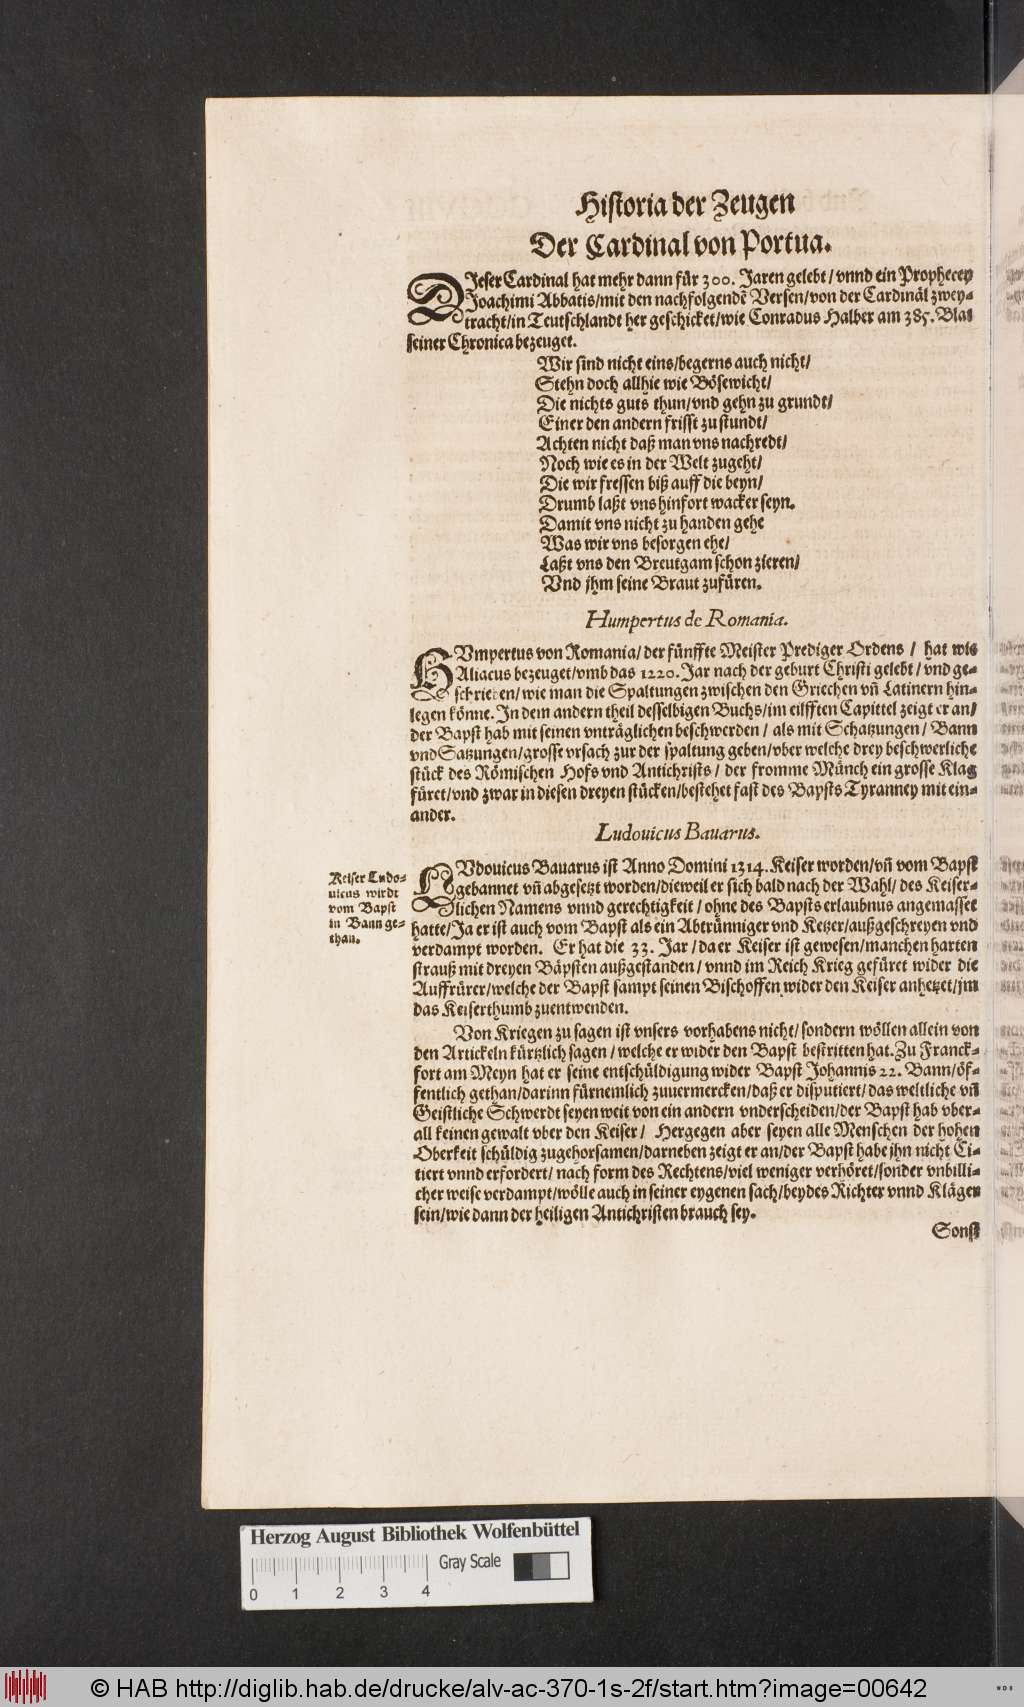 Historia der Zeugen
Der Cardinal von Portua.
DIeser Cardinal hat mehr dann für 300. Jaren gelebt / vnnd ein Prophecey
Joachimi Abbatis/mit den nachfolgendẽ Versen/von der Cardinäl zwey-
tracht/in Teutschlandt her geschicket/wie Conradus Halber am 385. Blat
seiner Chronica bezeuget.
Wir sind nicht eins/begerns auch nicht/
Stehn doch allhie wie Bösewicht/
Die nichts guts thun/vnd gehn zu grundt/
Einer den andern frisst zu stundt/
Achten nicht daß man vns nachredt/
Noch wie es in der Welt zugeht/
Die wir fressen biß auff die beyn/
Drumb laßt vns hinfort wacker seyn.
Damit vns nicht zu handen gehe
Was wir vns besorgen ehe/
Laßt vns den Breutgam schon zieren/
Vnd jhm seine Braut zufüren.
Humpertus de Romania.
HVmpertus von Romania/ der fünffte Meister Prediger Ordens / hat wie
Aliacus bezeuget/vmb das 1220. Jar nach der geburt Christi gelebt / vnd ge-
schrieben/ wie man die Spaltungen zwischen den Griechen vñ Latinern hin-
legen könne. In dem andern theil desselbigen Buchs/im eilfften Capittel zeigt er an/
der Bapst hab mit seinen vnträglichen beschwerden / als mit Schatzungen / Bann
vnd Satzungen/grosse vrsach zur der spaltung geben/vber welche drey beschwerliche
stück des Römischen Hofs vnd Antichrists / der fromme Münch ein grosse Klag
füret/vnd zwar in diesen dreyen stücken/bestehet fast des Bapsts Tyranney mit ein-
ander.
Ludouicus Bauarus.
Keiser Ludo-
uicus wirdt
vom Bapst
in Bann ge-
than.
LVdouicus Bauarus ist Anno Domini 1314. Keiser worden/vñ vom Bapst
gebannet vñ abgesetzt worden/dieweil er sich bald nach der Wahl/ des Keiser-
lichen Namens vnnd gerechtigkeit / ohne des Bapsts erlaubnus angemasset
hatte/Ja er ist auch vom Bapst als ein Abtrünniger vnd Ketzer/außgeschreyen vnd
verdampt worden. Er hat die 33. Jar / da er Keiser ist gewesen/manchen harten
strauß mit dreyen Bäpsten außgestanden / vnnd im Reich Krieg gefüret wider die
Auffrürer/welche der Bapst sampt seinen Bischoffen wider den Keiser anhetzet/jm
das Keiserthumb zuentwenden.
Von Kriegen zu sagen ist vnsers vorhabens nicht/ sondern wöllen allein von
den Artickeln kürtzlich sagen / welche er wider den Bapst bestritten hat. Zu Franck-
fort am Meyn hat er seine entschüldigung wider Bapst Johannis 22. Bann/öf-
fentlich gethan/darinn fürnemlich zuuermercken/daß er disputiert/das weltliche vñ
Geistliche Schwerdt seyen weit von ein andern vnderscheiden/der Bapst hab vber-
all keinen gewalt vber den Keiser / Hergegen aber seyen alle Menschen der hohen
Oberkeit schüldig zugehorsamen/darneben zeigt er an/der Bapst habe jhn nicht Ci-
tiert vnnd erfordert/ nach form des Rechtens/viel weniger verhöret/sonder vnbilli-
cher weise verdampt/wölle auch in seiner eygenen sach/beydes Richter vnnd Kläger
sein/wie dann der heiligen Antichristen brauch sey.
Sonst
Herzog August Bibliothek Wolfenbüttel
Gray Scale
0 1 2 3 4
© HAB http://diglib.hab.de/drucke/alv-ac-370-1s-2f/start.htm?image=00642